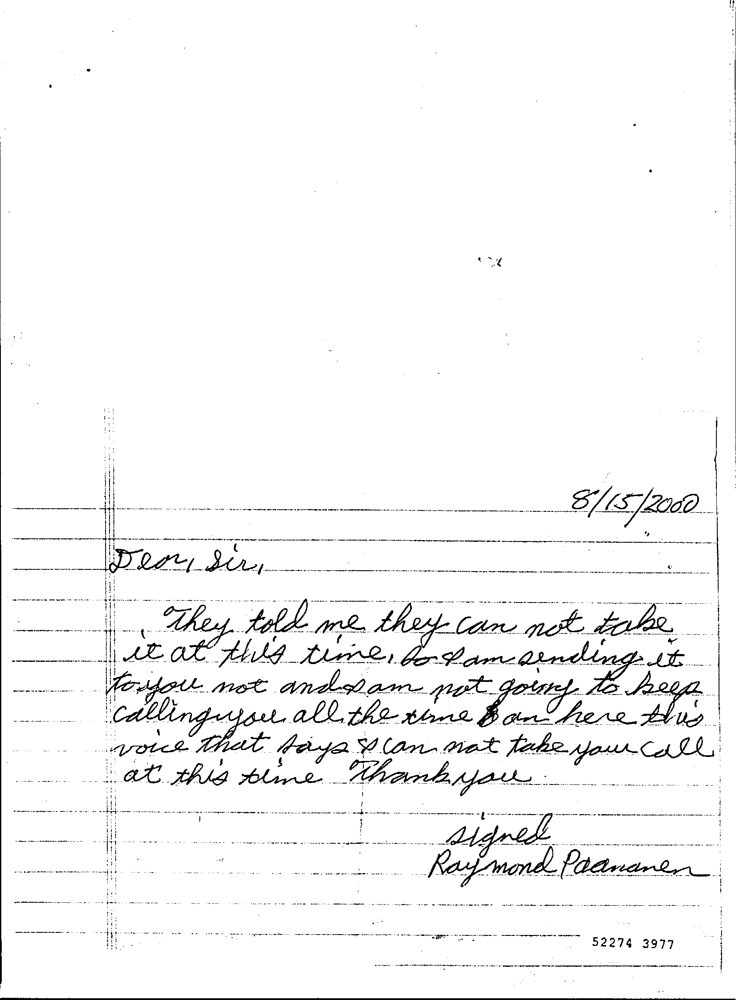 8/15/2000
Dear, Sir,
They told me they can not take
it at this time, So I am sending it
to you not and I am not going to keep
calling you all the time an here this
voice that says I can not take your call
at this time Thank you
signed
Raymond Paananen
52274 3977